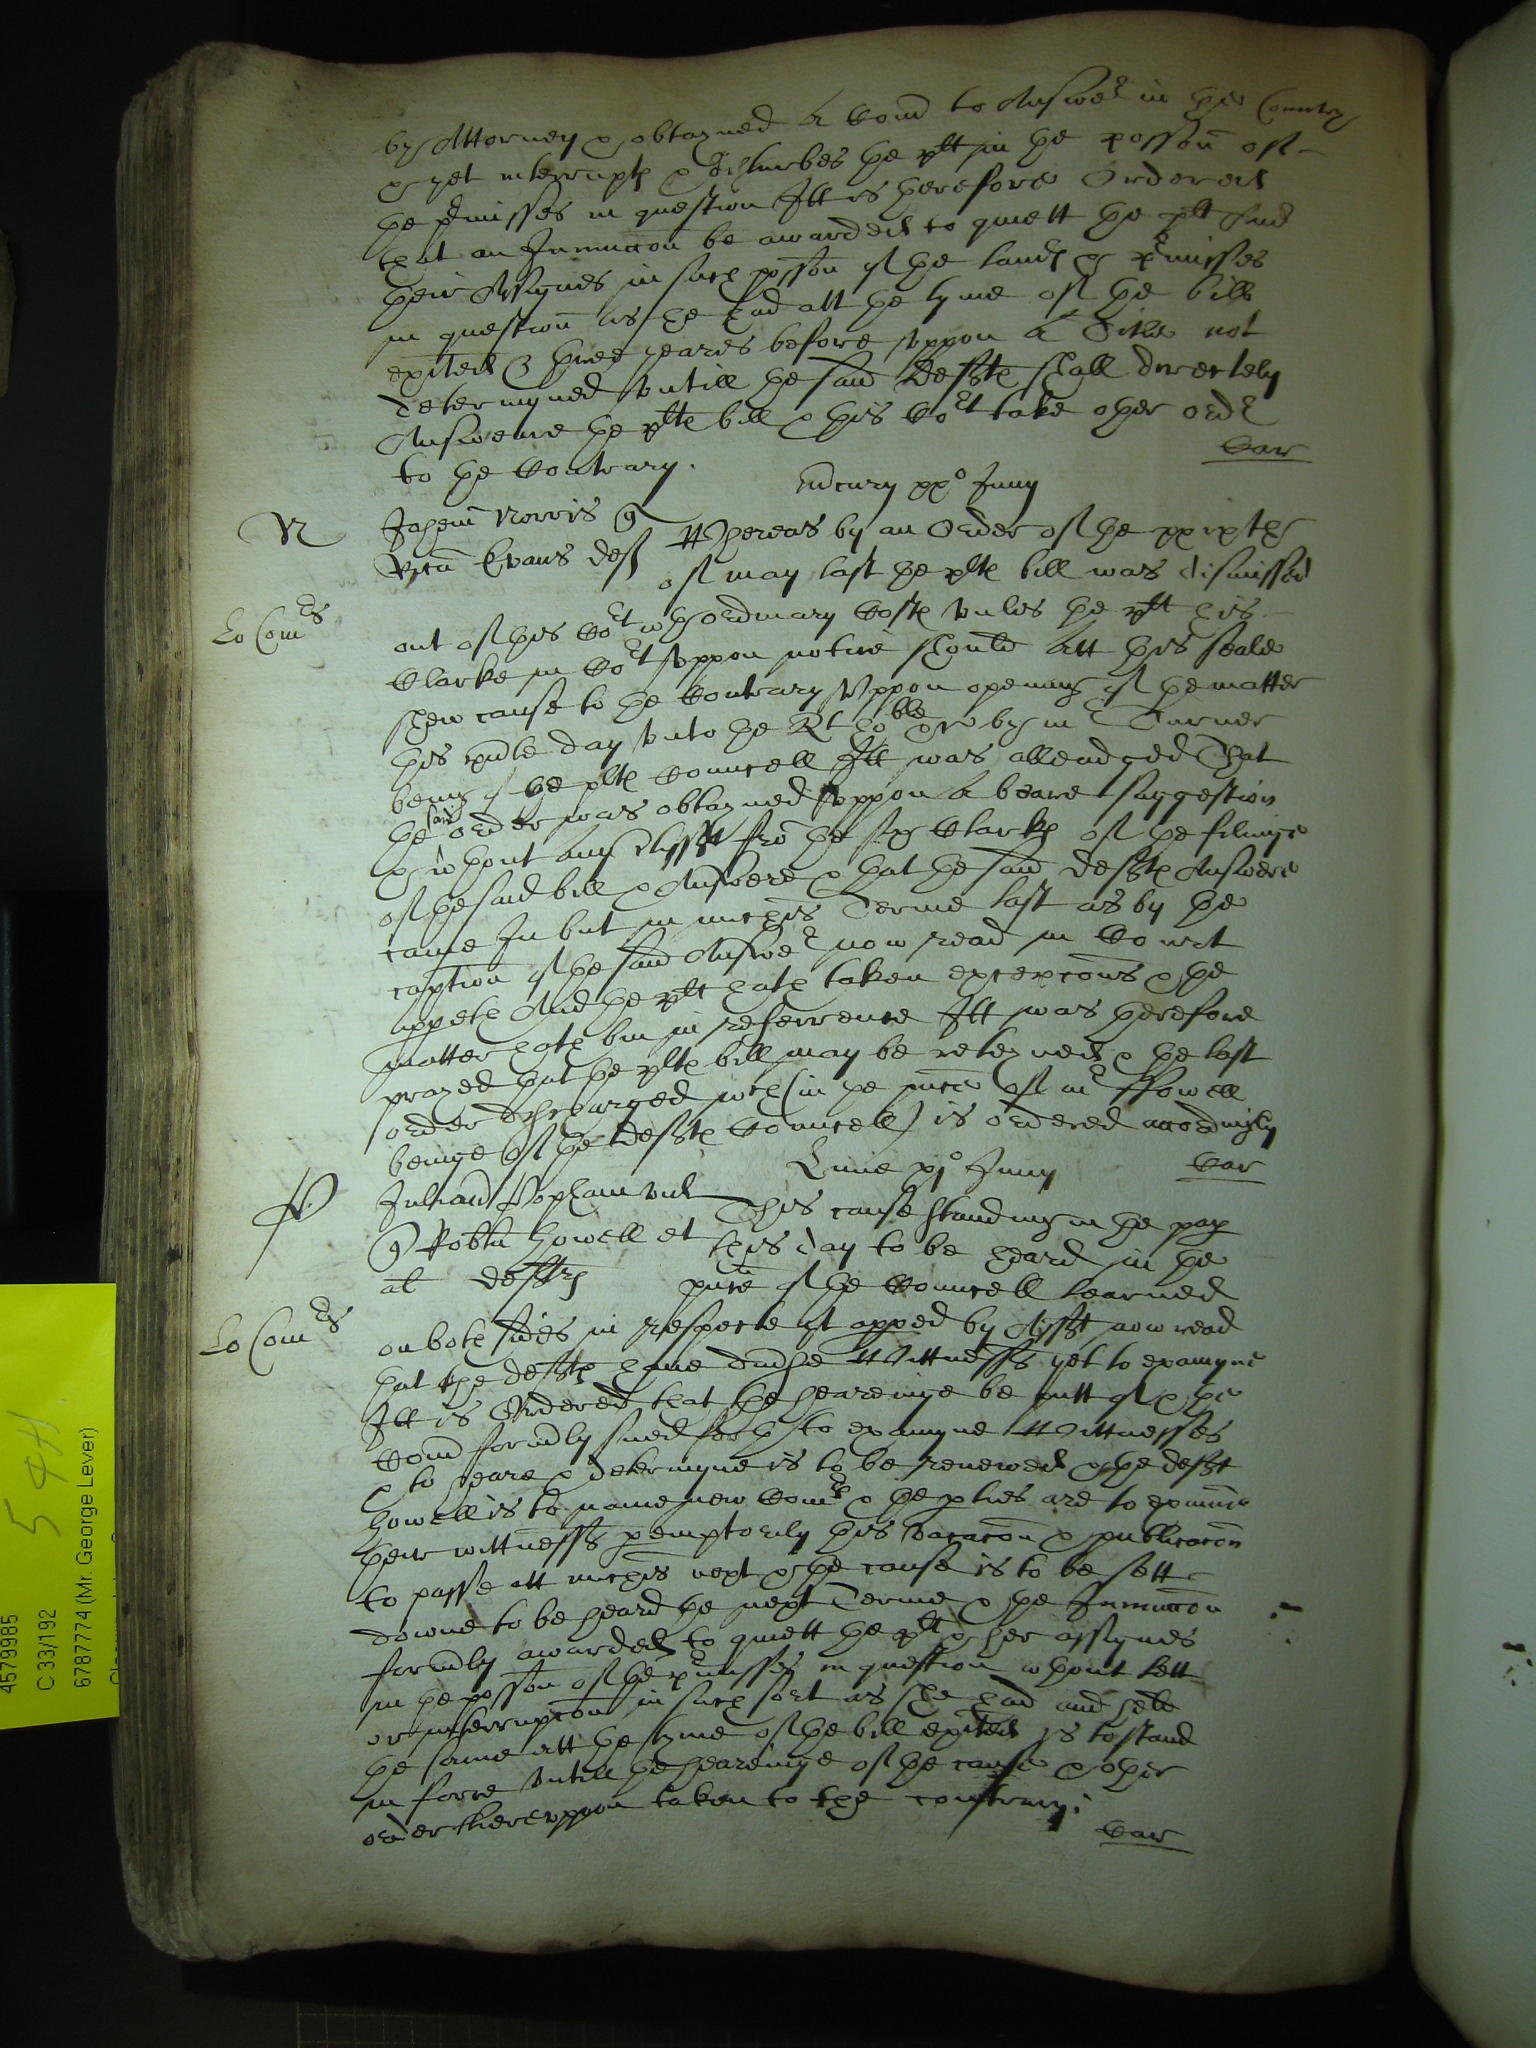 by Attorney & obtayned a Com̃ to Answer in the Country
& yet interrupts & disturbes the plt in the possom̃ of
the p̃misses in question Itt is therefore Ordered
that an Iniunccon be awarded to quiett the plt and
their Assignes in such possom̃ of the lands & p̃misses
in question as he had att the tyme of the bill
exh̃ited & three yeares before uppon a Title not
determyned untill the said Defts shall directely
Answeare the plts bill & this Cort take other ordr
to the Contrary.
Car
Mercury xxo Juny
N
Johem Norris q
Ricũ Evans deft
Whereas by an Order of the xxixth
of may last the plts bill was dismissed
Lo Comrs
out of this Cort wth ordinary Costs unles the plt his
Clarke in Cort uppon notice should att this seale
shew cause to the Contrary Uppon opening of the matter
this p̃nte day unto the Rt hoble by mr Turner
being of the plts Councell Itt was alleadged That
the said order was obtayned uppon a beare suggestion
& wthout any Affdt frõ the six Clarks of the filinge
of the said bill & Answere & that the said Defts Answere
came In but in michis Terme last as by the
caption of the said Answer now read in Court
appeth And the plt hath taken excepcons & the
matter hath bin in referrence Itt was therefore
prayed that the plts bill may be reteyned & the last
order discharged wch (in the p̃nce of mr ffowell
beinge of the Defts Councell) is ordered accordingly
Lune xjo Juny
Car
P
Juliana Popham vid
q Robtũ Howell et
al defts
This cause standing in the pap
this day to be heard in the
p̃nce of the Councell learned
Lo Comrs
on both sides in respecte it apped by Affdt now read
that the defts have Wittnesses yet to examyne
Itt is Ordered that the heareinge be putt of & the
Com̃ formly sued forth to examyne Wittnesses
& to heare & determyne is to be renewed & the deft
Howell is to name new Comrs & the pties are to examine
their wittnesses pemptorily this vacacõn & publicacõn
to passe att michis next & the cause is to be sett
downe to be heard the next Terme & the Iniunccon
formly awarded to quiett the plt & her assignes
in the possom̃ of the p̃misses in question wthout lett
or interrupcon in such sort as she had and held
the same att the tyme of the bill exh̃ited is to stand
in force untill the heareinge of the cause & other
order thereuppon taken to the contrary:
Car
4579985
C 33/192
6787774 (Mr. George Lever)
54H.